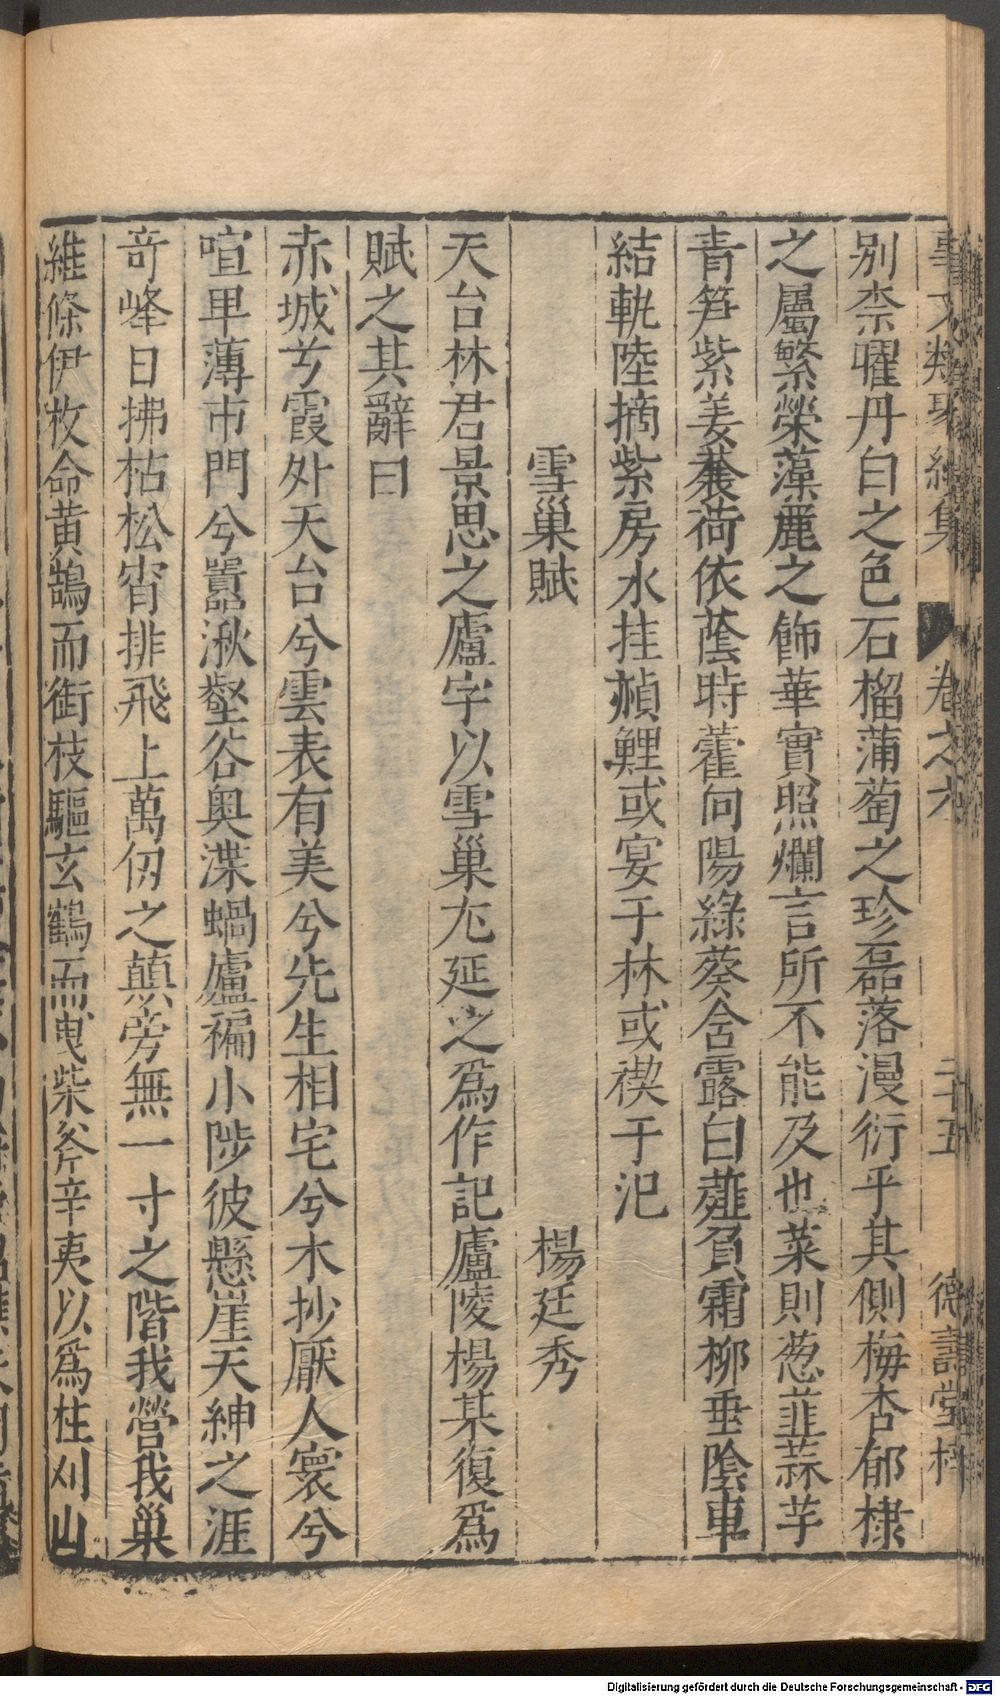 事文類聚續集 卷之六 二十五 德壽堂梓
別柰曜丹白之色石榴蒲萄之珍磊落漫衍乎其側梅杏郁棣
之屬繁榮藻麗之飾華實照爛言所不能及也菜則葱韮蒜芋
青笋紫姜蓁荷依蔭時藿向陽綠葵含露白薤負霜柳垂陰車
結軌陸摘紫房水挂赬鯉或宴于林或禊于汜
雪巢賦 楊廷秀
天台林君景思之廬字以雪巢尢延之爲作記廬陵楊某復爲
賦之其辭曰
赤城兮霞外天台兮雲表有美兮先生相宅兮木抄厭人寰兮
喧卑薄市門兮囂湫壑谷奥渫蝸廬褊小陟彼懸崖天紳之涯
竒峰日拂枯松宵排飛上萬仭之顛旁無一寸之階我營我巢
維條伊枚命黃鵠而銜枝驅玄鶴而曳柴斧辛夷以爲柱刈山
Digitalisierung gefördert durch die Deutsche Forschungsgemeinschaft - DFG